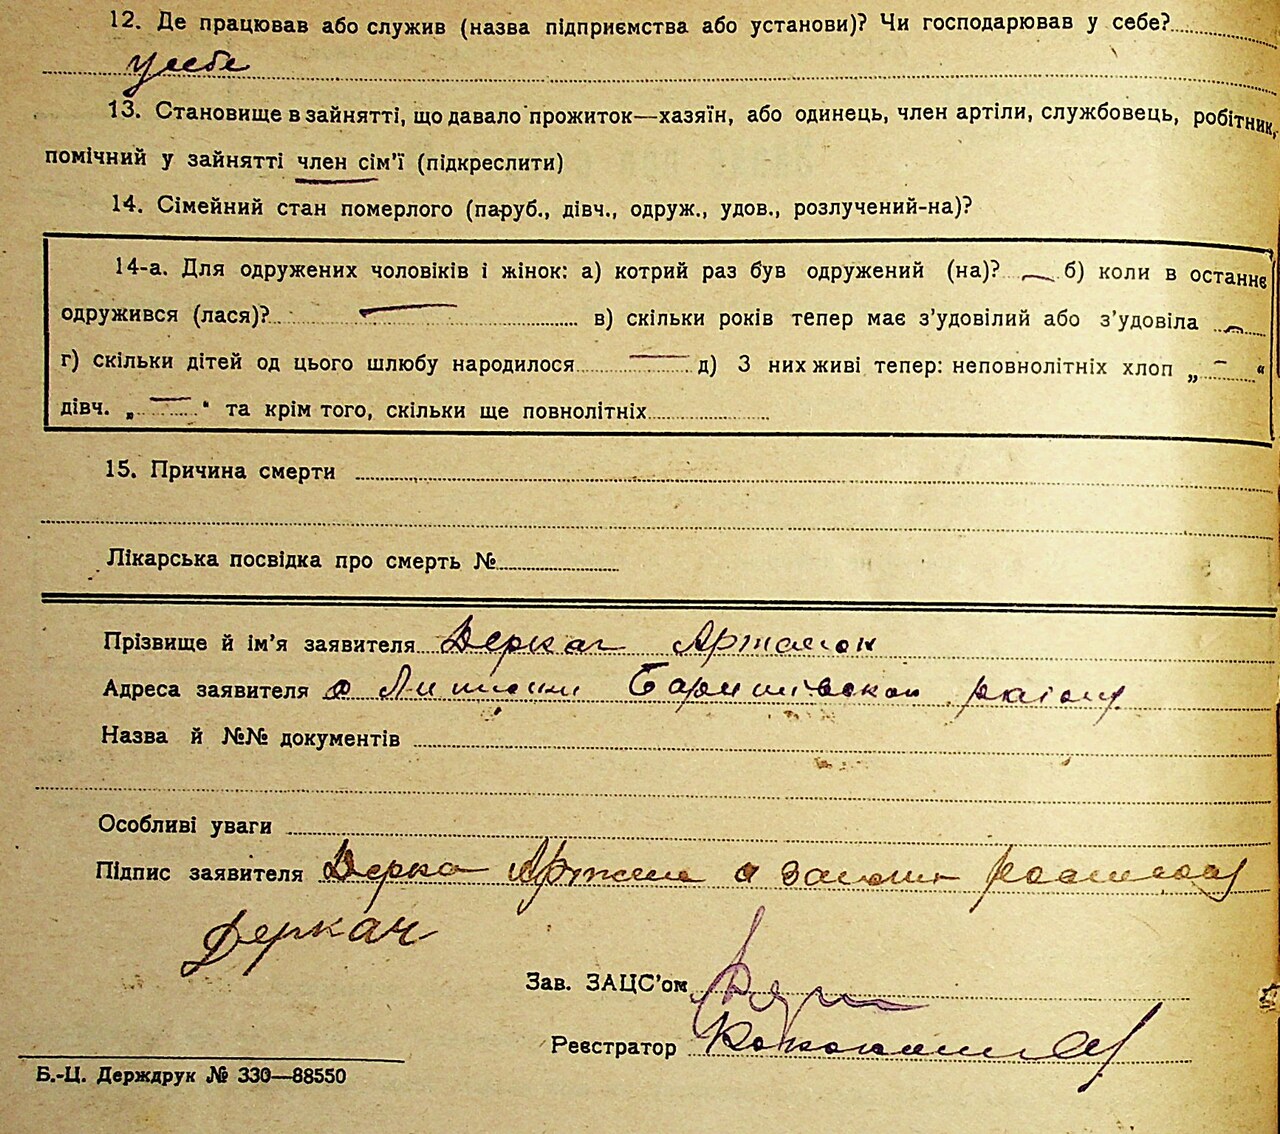 12. Де працював або служив (назва підприємства або установи)? Чи господарював у себе?
у себе
13. Становище в зайнятті, що давало прожиток—хазяїн, або одинець, член артіли, службовець, робітник,
помічний у зайнятті член сім'ї (підкреслити)
14. Сімейний стан померлого (паруб., дівч., одруж., удов., розлучений-на)?
14-а. Для одружених чоловіків і жінок: а) котрий раз був одружений (на)? — б) коли в останнє
одружився (лася)? — в) скільки років тепер має з'удовілий або з'удовіла —
г) скільки дітей од цього шлюбу народилося — д) З них живі тепер: неповнолітніх хлоп „ — “
дівч. „ — “ та крім того, скільки ще повнолітніх
15. Причина смерти
Лікарська посвідка про смерть №
Прізвище й ім'я заявителя Деркач Артамон
Адреса заявителя Баришівском району
Назва й №№ документів
Особливі уваги
Підпис заявителя Дерка
Деркач
Зав. ЗАЦС'ом
Реєстратор
Б.-Ц. Держдрук № 330—88550